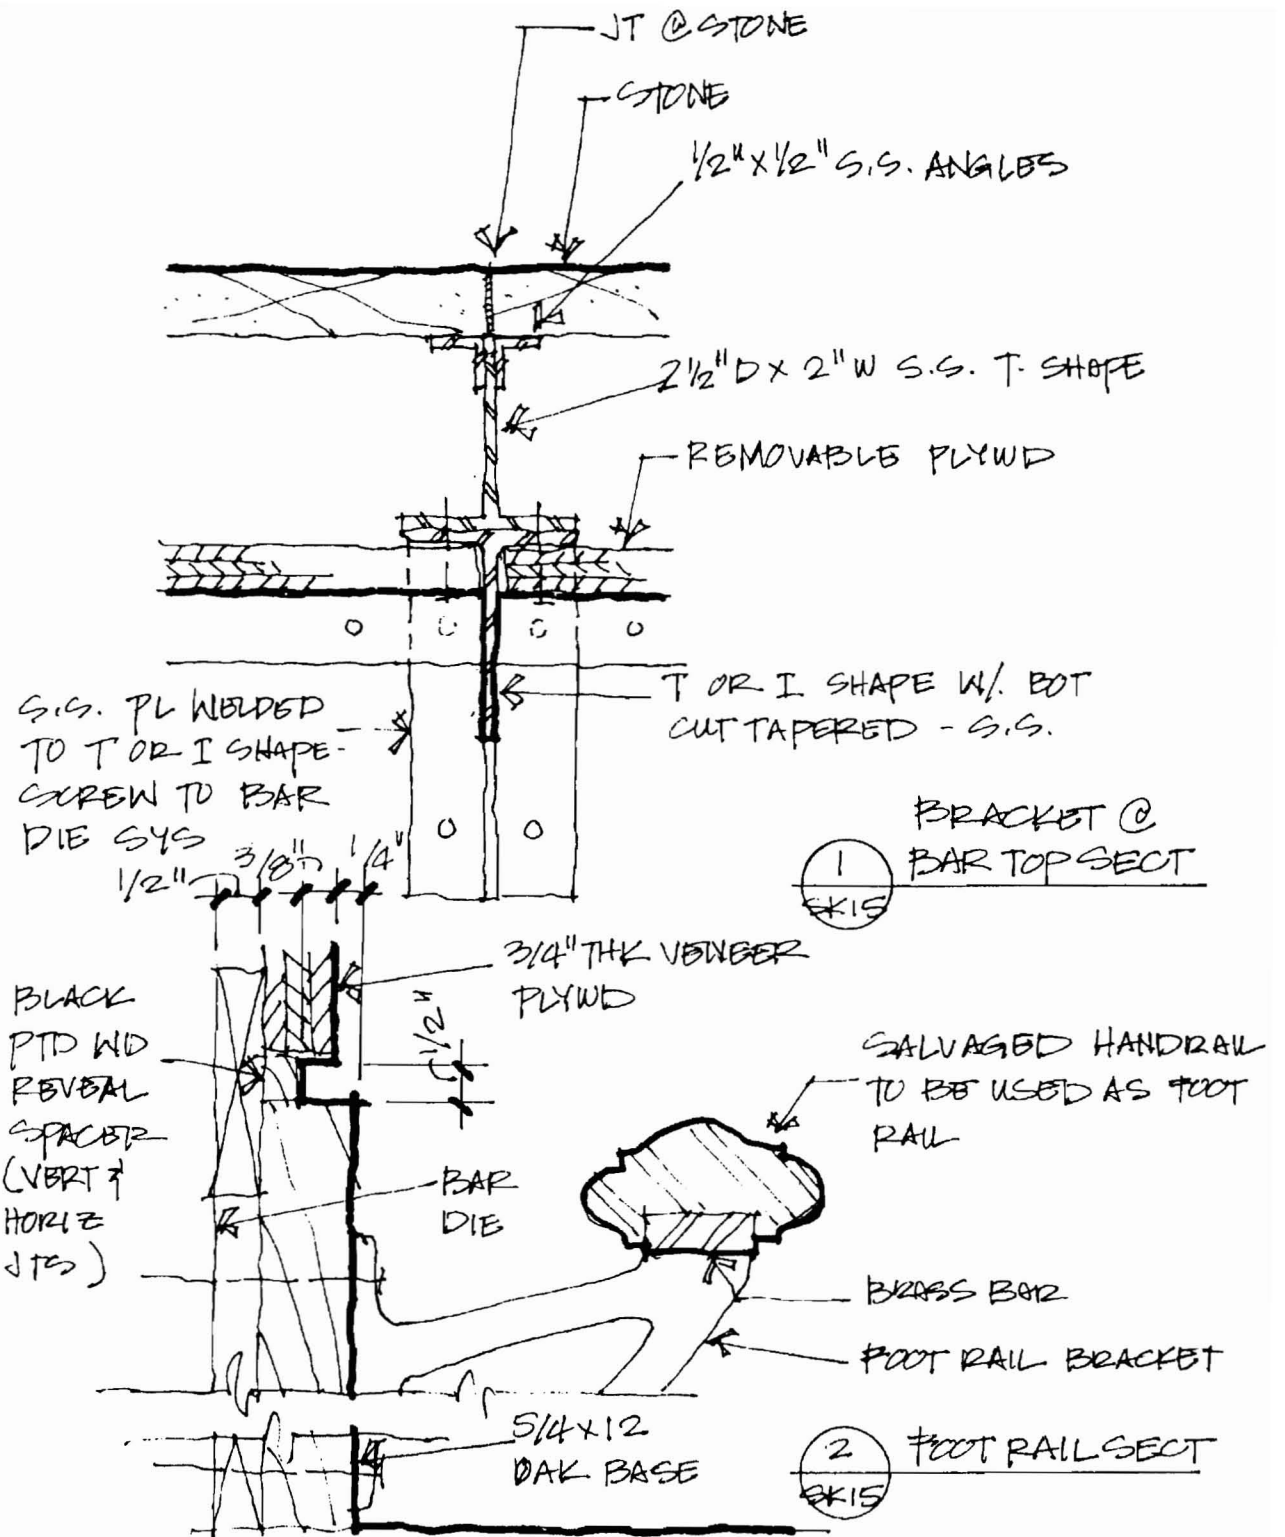 JT @ STONE
STONE
1/2" X 1/2" S.S. ANGLES
2 1/2" D X 2" W S.S. T. SHAPE
REMOVABLE PLYWD
T OR I SHAPE W/. BOT
CUT TAPERED - S.S.
S.S. PL WELDED
TO T OR I SHAPE-
SCREW TO BAR
DIE SYS
BRACKET @
BAR TOP SECT
1
SK15
1/2" 3/8" 1/4"
3/4" THK VENEER
PLYWD
1/2"
BLACK
PTD WD
REVEAL
SPACER
(VERT &
HORIZ
JTS)
BAR
DIE
SALVAGED HANDRAIL
TO BE USED AS FOOT
RAIL
BRASS BAR
FOOT RAIL BRACKET
5/4 X 12
OAK BASE
2
SK15
FOOT RAIL SECT